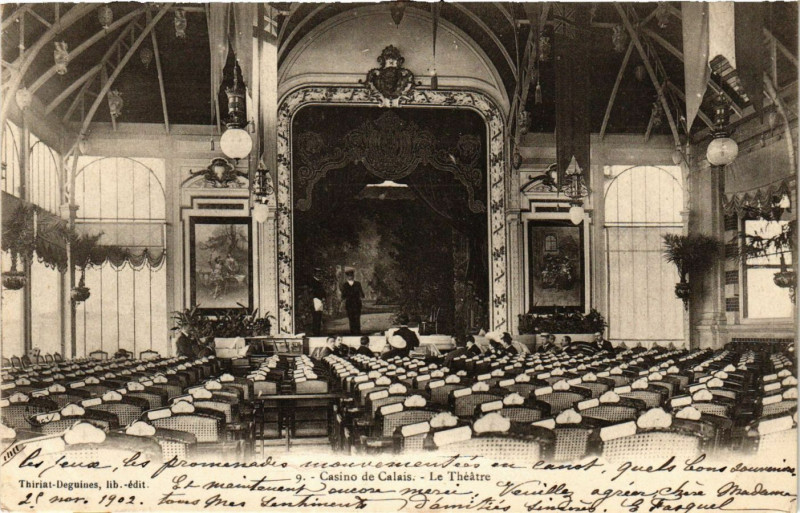 les jeux, les promenades mouvementées en canot, quels bons souvenirs.
9. - Casino de Calais. - Le Théâtre
Thiriat-Deguines, lib.-édit.
Et maintenant encore merci. Veuillez agréer chère Madame
25 nov. 1902. tous mes sentiments d'amitiés sincères.